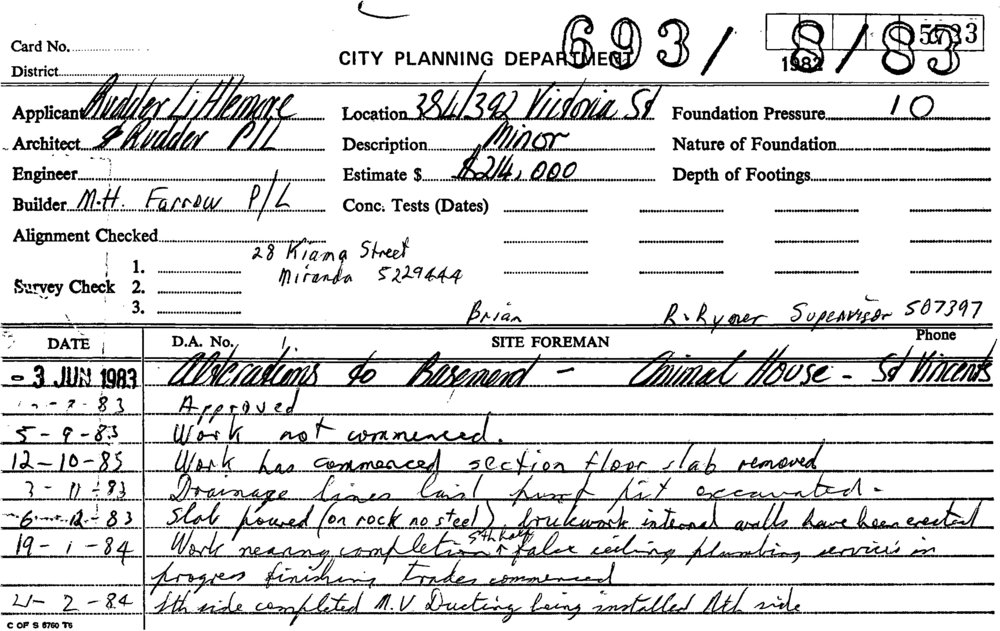 Card No.
CITY PLANNING DEPARTMENT 693/ 8/83
1982 5733
District
Applicant Rudder Littlemore Location 384/392 Victoria St Foundation Pressure 10
Architect & Rudder P/L Description Minor Nature of Foundation
Engineer Estimate $ $214,000 Depth of Footings
Builder M.H. Farrow P/L Conc. Tests (Dates)
Alignment Checked
28 Kiama Street
Survey Check 1.
Miranda 5229444
2.
3. Brian R. Rymer Supervisor 587397
DATE D.A. No. SITE FOREMAN Phone
- 3 JUN 1983 Alterations to Basement - Animal House - St Vincents
83 Approved
5-9-83 Work not commenced.
12-10-83 Work has commenced section floor slab removed
3-11-83 Drainage lines laid pit excavated.
6-12-83 Slab poured (on rock no steel), brickwork internal walls have been erected
19-1-84 Work nearing completion Sth half & false ceiling plumbing services in
progress finishing trades commenced
21-2-84 Sth side completed M.V Ducting being installed Nth side
C OF S 6760 T6